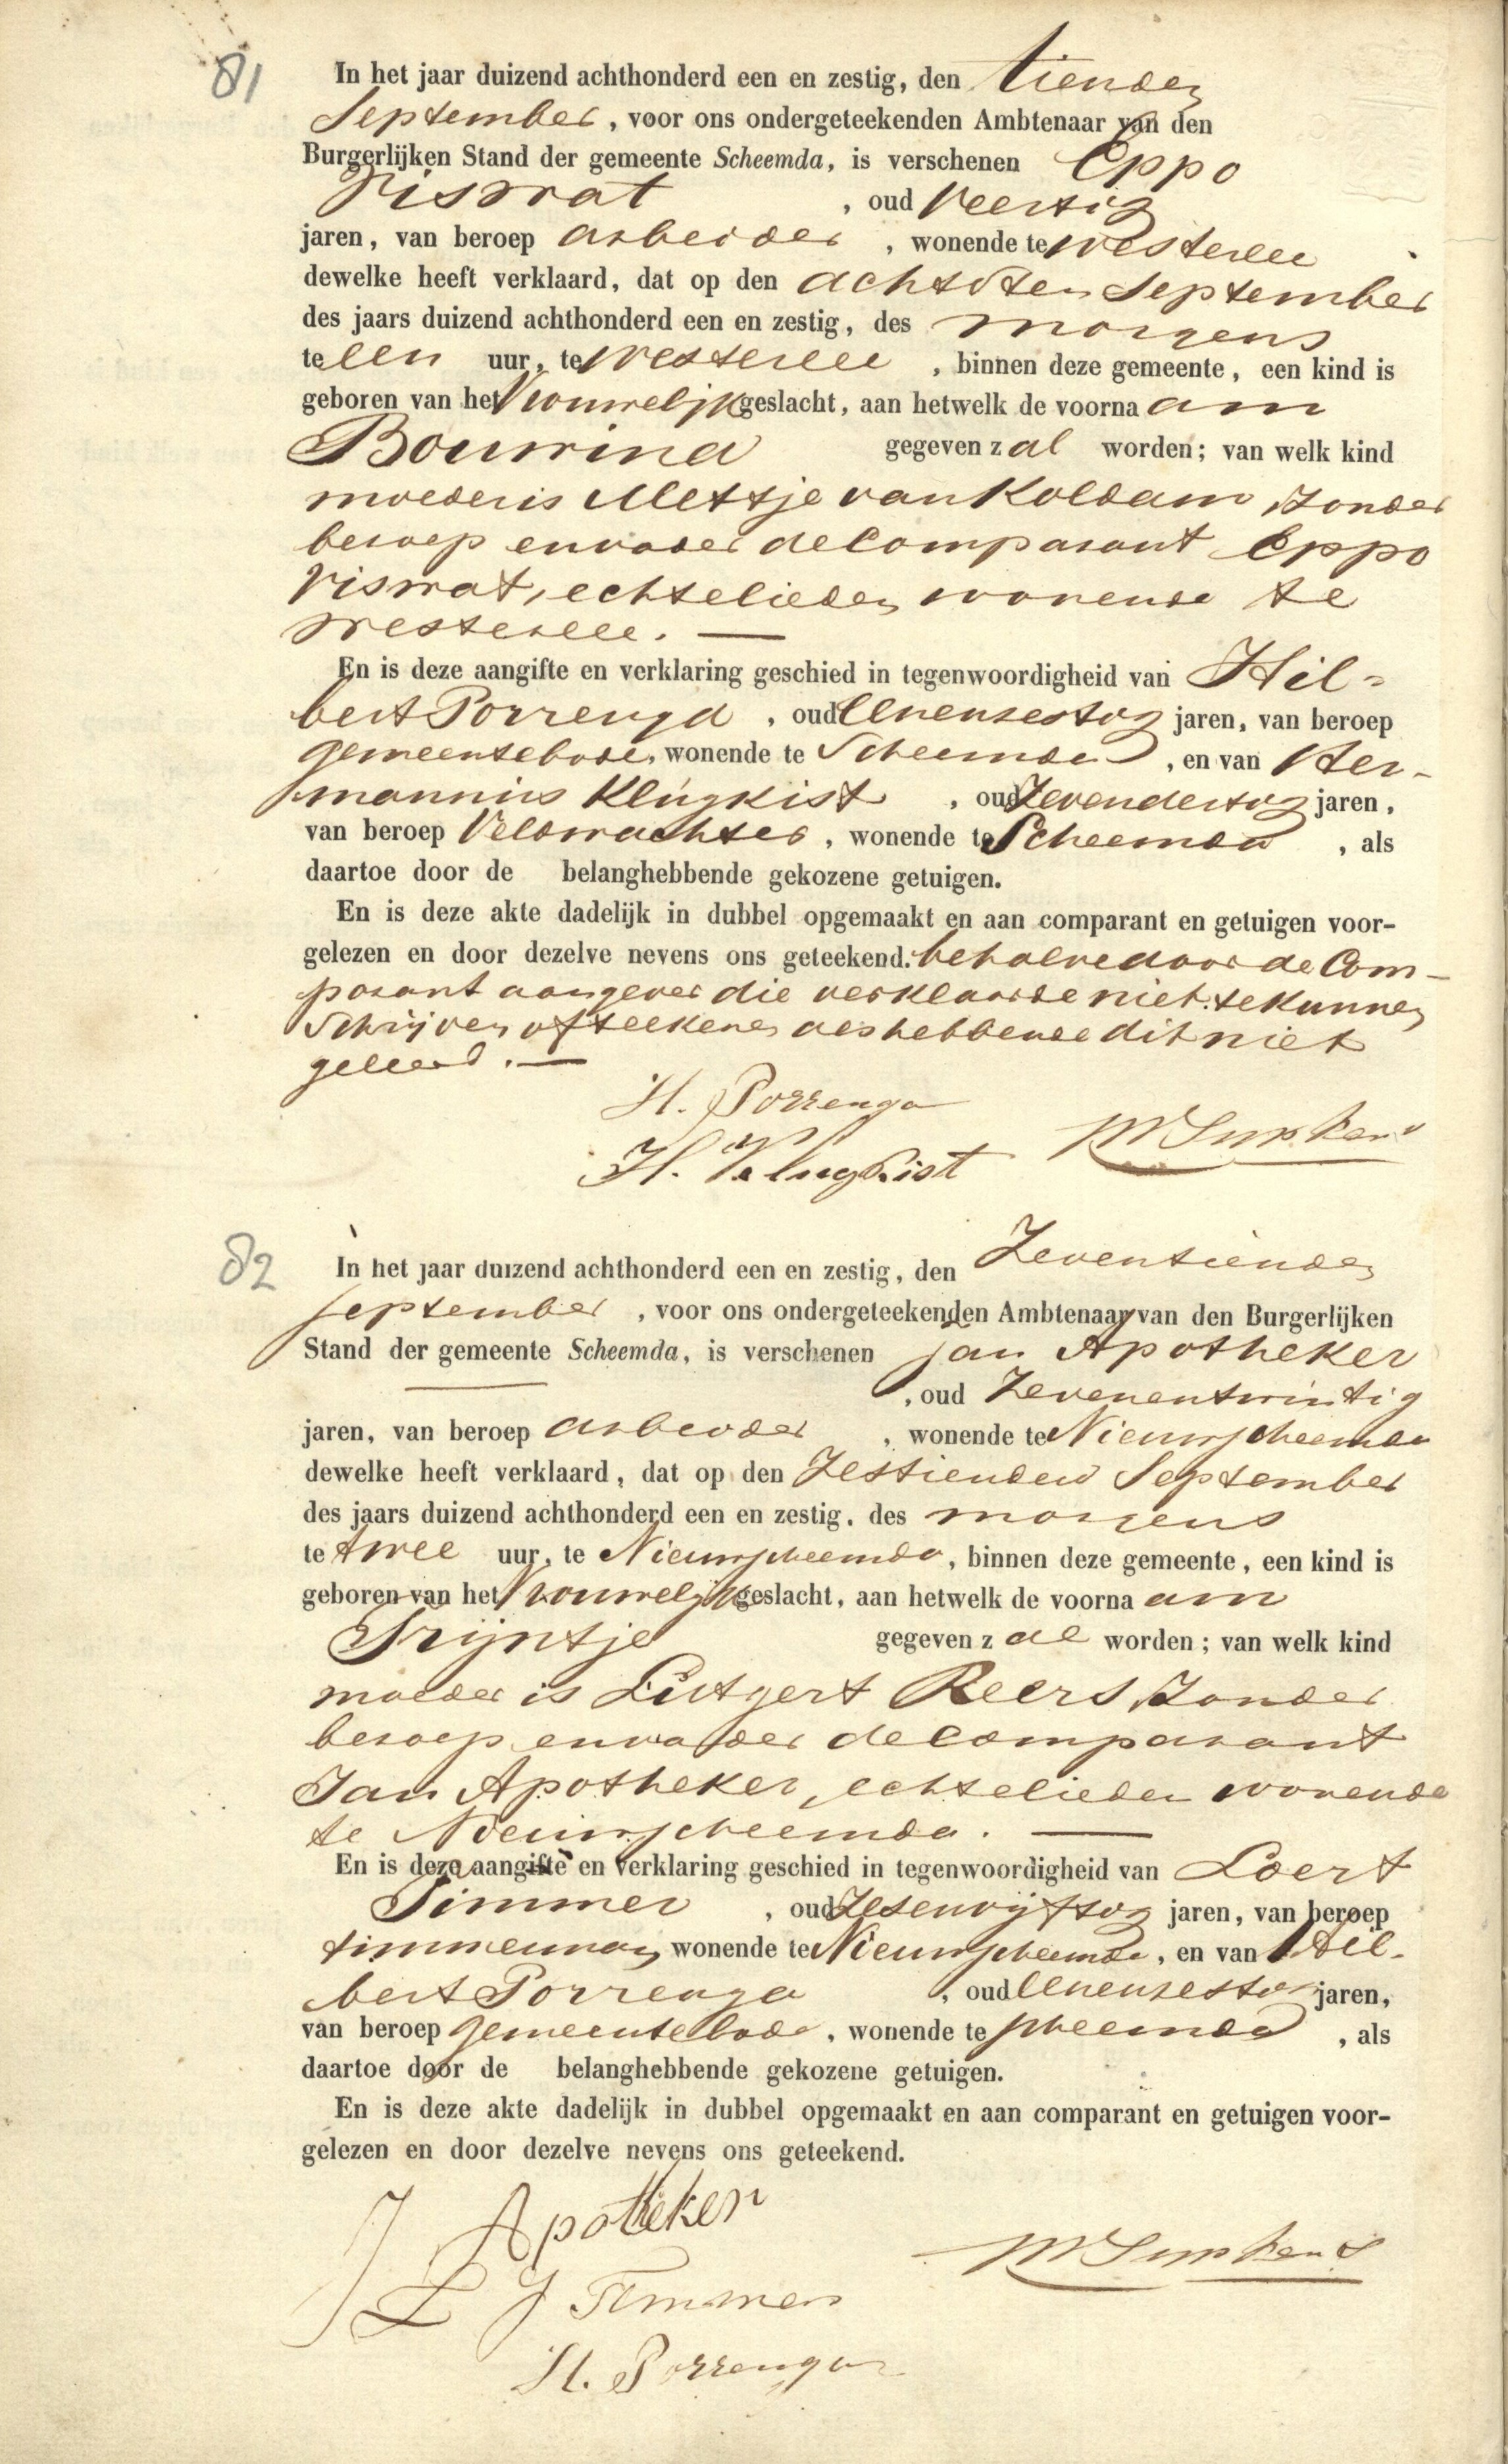 81
In het jaar duizend achthonderd een en zestig, den tienden
September, voor ons ondergeteekenden Ambtenaar van den
Burgerlijken Stand der gemeente Scheemda, is verschenen Eppo
Viswat, oud Veertig
jaren, van beroep arbeider, wonende te Westerlee
dewelke heeft verklaard, dat op den achtsten September
des jaars duizend achthonderd een en zestig, des morgens
te een uur, te Westerlee, binnen deze gemeente, een kind is
geboren van het Vrouwelijk geslacht, aan hetwelk de voornaam
Bouwina gegeven zal worden; van welk kind
moeder is Mettje van Koldam, zonder
beroep en vader de Comparant Eppo
Viswat, echtelieden wonende te
Westerlee. —
En is deze aangifte en verklaring geschied in tegenwoordigheid van Hil-
bert Porrenga, oud Eenenzestig jaren, van beroep
gemeentebode, wonende te Scheemda, en van Her-
mannus Klugkist, oud Zevendertig jaren,
van beroep Veldwachter, wonende te Scheemda, als
daartoe door de belanghebbende gekozene getuigen.
En is deze akte dadelijk in dubbel opgemaakt en aan comparant en getuigen voor-
gelezen en door dezelve nevens ons geteekend. behalve door de Com-
parant aangever die verklaarde niet te kunnen
Schrijven of teekenen als hebbende dit niet
geleerd. —
H. Porrenga
H. Klugkist
82
In het jaar duizend achthonderd een en zestig, den Zeventienden
September, voor ons ondergeteekenden Ambtenaar van den Burgerlijken
Stand der gemeente Scheemda, is verschenen Jan Apotheker
, oud Zevenentwintig
jaren, van beroep arbeider, wonende te Nieuwscheemda
dewelke heeft verklaard, dat op den Zestienden September
des jaars duizend achthonderd een en zestig, des morgens
te twee uur, te Nieuwscheemda, binnen deze gemeente, een kind is
geboren van het Vrouwelijk geslacht, aan hetwelk de voornaam
Trijntje gegeven zal worden; van welk kind
moeder is Lutgert Reers, zonder
beroep en vader de Comparant
Jan Apotheker, echtelieden wonende
te Nieuwscheemda. —
En is deze aangifte en verklaring geschied in tegenwoordigheid van Loert
Timmer, oud Zesenvijftig jaren, van beroep
timmerman, wonende te Nieuwscheemda, en van Hil-
bert Porrenga, oud Eenenzestig jaren,
van beroep gemeentebode, wonende te Scheemda, als
daartoe door de belanghebbende gekozene getuigen.
En is deze akte dadelijk in dubbel opgemaakt en aan comparant en getuigen voor-
gelezen en door dezelve nevens ons geteekend.
J Apotheker
L J Timmer
H. Porrenga